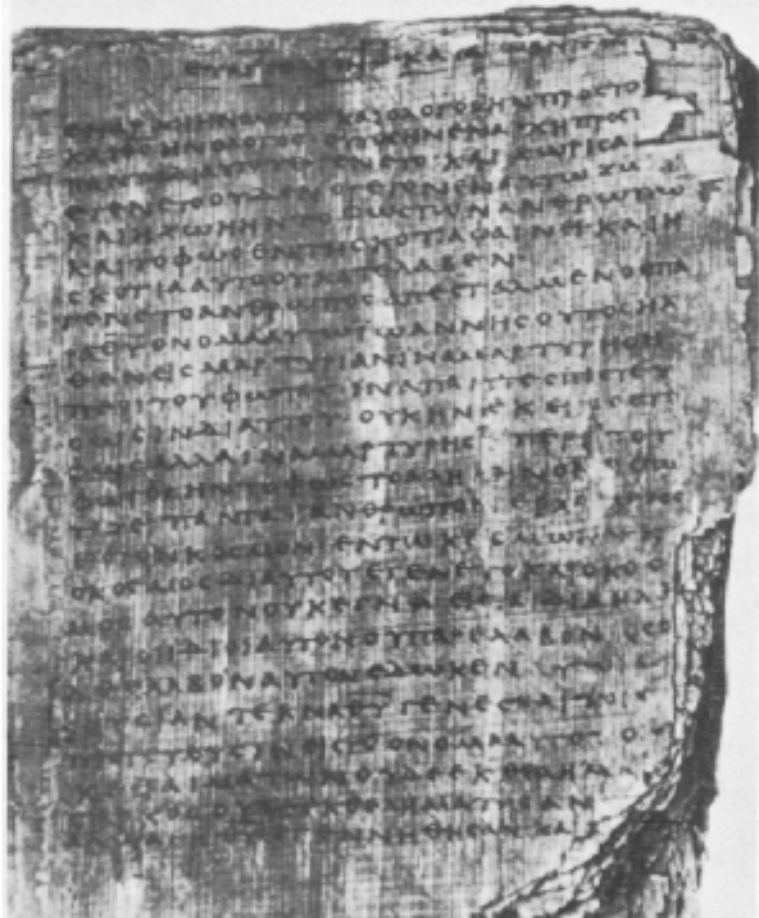 ΕΝΑΡΧΗΗΝΟΛΟΓΟϹΚΑΙΟΛΟΓΟϹΗΝΠΡΟϹΤΟ
ΗΝΟΛΟΓΟϹ ΟΥΤΟϹΗΝΕΝΑΡΧΗΠΡΟϹΤ
ΠΑΝΤΑΔΙΑΥΤΟΥΕΓΕΝΕΤΟ ΚΑΙΧΩΡΙϹΑ
ΕΓΕΝΕΤΟΟΥΔΕΝΟΓΕΓΟΝΕΝΕΝΑΥΤΩΖΩ
ΚΑΙΗΖΩΗΗΝΤΟΦΩϹΤΩΝΑΝΘΡΩΠΩ
ΚΑΙΤΟΦΩϹΕΝΤΗϹΚΟΤΙΑΦΑΙΝΕΙΚΑΙΗ
ϹΚΟΤΙΑΑΥΤΟΟΥΚΑΤΕΛΑΒΕΝ
ΕΓΕΝΕΤΟΑΝΘΡΩΠΟϹΑΠΕϹΤΑΛΜΕΝΟϹΠΑ
ΡΑΘΥΟΝΟΜΑΑΥΤΩΙΩΑΝΝΗϹΟΥΤΟϹΗΛ
ΘΕΝΕΙϹΜΑΡΤΥΡΙΑΝΙΝΑΜΑΡΤΥΡΗϹΗ
ΠΕΡΙΤΟΥΦΩΤΟϹΙΝΑΠΑΝΤΕϹΠΙϹΤΕΥ
ϹΩϹΙΝΔΙΑΥΤΟΥΟΥΚΗΝΕΚΕΙΝΟϹΤΟ
ΦΩϹΑΛΛΑΙΝΑΜΑΡΤΥΡΗϹΗΠΕΡΙΤΟΥ
ΦΩΤΟϹΗΝΤΟΦΩϹΤΟΑΛΗΘΙΝΟΝΟΦΩ
ΤΙΖΕΙΠΑΝΤΑΑΝΘΡΩΠΟΝ
ΚΟϹΜΟΝΕΝΤΩΚΟϹΜΩΗΝ
ΟΚΟϹΜΟϹΔΙΑΥΤΟΥΕΓΕΝΕΤΟΚΑΙΟΚΟϹ
ΜΟϹΑΥΤΟΝΟΥΚΕΓΝΩΕΙϹΤΑΙΔΙΑΗΛ
ΚΑΙΟΙΙΔΙΟΙΑΥΤΟΝΟΥΠΑΡΕΛΑΒΟΝΟϹΟ
ΔΕΕΛΑΒΟΝΑΥΤΟΝΕΔΩΚΕΝΑΥΤΟΙϹΕ
ΞΟΥϹΙΑΝΤΕΚΝΑΘΥΓΕΝΕϹΘΑΙΤΟΙϹ
ΠΙϹΤΕΥΟΥϹΙΝΕΙϹΤΟΟΝΟΜΑΑΥΤΟΥΟΙ
ΑΙΜΑΤΩΝΟΥΔΕΕΚΘΕΛΗΜΑ
ΟΥΔΕΕΚΘΕΛΗΜΑΤΟϹΑΝ
ΕΓΕΝΝΗΘΗϹΑΝΚΑΙ